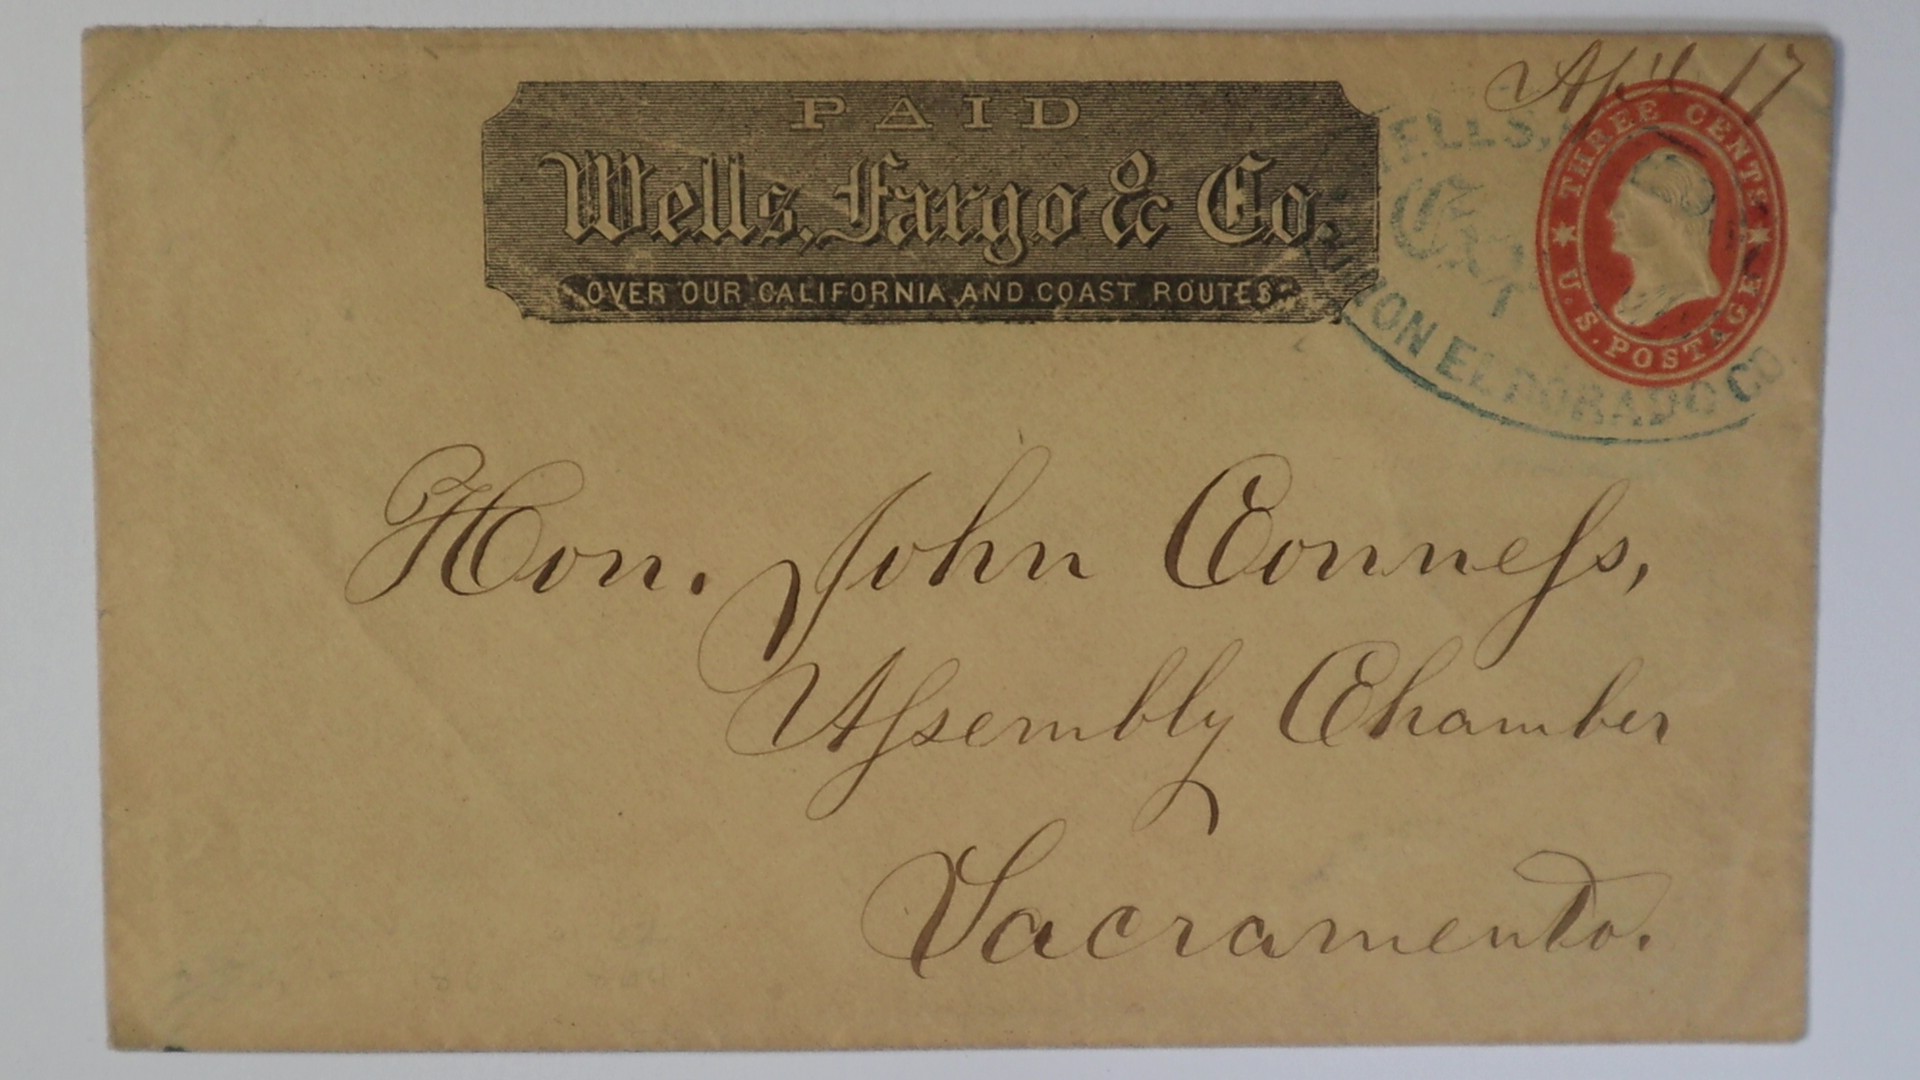 April 17
PAID
Wells, Fargo & Co.
OVER OUR CALIFORNIA AND COAST ROUTES
WELLS,
EL DORADO CO.
THREE CENTS
U.S. POSTAGE
Hon. John Conneſs,
Aſsembly Chamber
Sacramento.